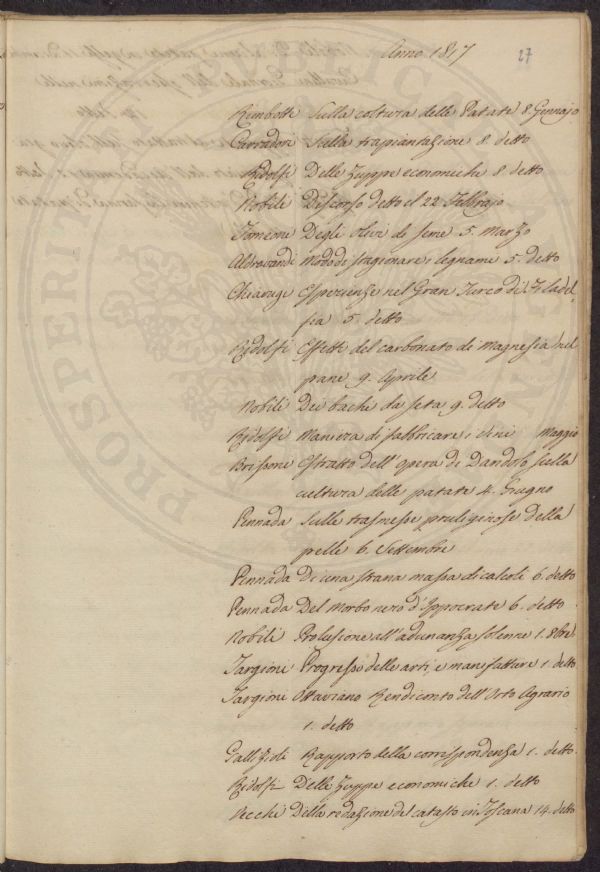 Anno 1817
27
Rimbotti Sulla coltura delle Patate 8. Gennajo
Carradori Sulla trapiantazione 8. detto
Ridolfi Delle Zuppe economiche 8 detto
Nobili Discorso detto il 22 Febbrajo
Tomeone Degli olivi di seme 5. Marzo
Aldrovandi Modo di stagionare i legname 5. detto
Chiarugi Esperienze nel Gran Turco di Filadel-
fia 5. detto
Ridolfi Effetti del carbonato di Magnesia nel
pane 9. Aprile
Nobili Dei bachi da seta 9. detto
Ridolfi Maniera di fabbricare i vini Maggio
Brissone Estratto dell'opera di Dandolo sulla
cultura delle patate 4. Giugno
Pennada Sulle prulginose della
pelle 6. Settembre
Pennada Di una strana massa di calcoli 6. detto
Pennada Del Morbo nero d'Ippocrate 6. detto
Nobili Prolusione all'adunanza solenne 1. 8bre
Targioni Progresso delle arti, e manifatture 1 detto
Targioni Ottaviano Rendiconto dell'Orto Agrario
1. detto
Gallizioli Rapporto della corrispondenza 1. detto
Ridolfi Delle Zuppe economiche 1. detto
Vecchi Della redazione del catasto in Toscana 14. detto
PROSPERITATI PUBLICAE AUGENDAE